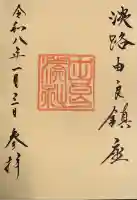 淡路由良鎮座
令和八年一月三日参拝